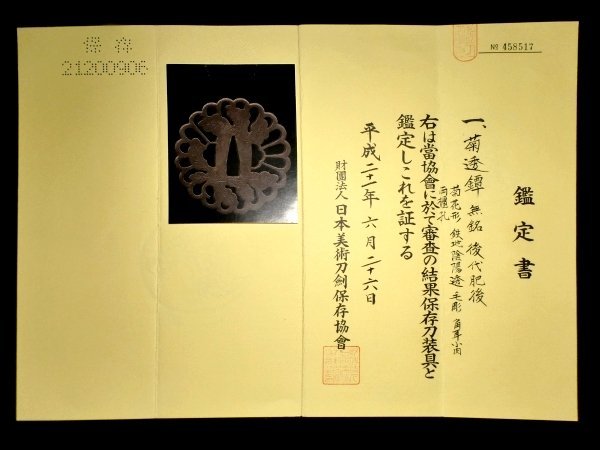 保存
21200906
№ 458517
鑑定書
一、菊透鐔 無銘 後代肥後
菊花形 鉄地 陰陽透 毛彫 角耳小肉
両櫃孔
右は當協會に於て審査の結果保存刀装具と
鑑定しこれを証する
平成二十一年六月二十六日
財團法人 日本美術刀劍保存協會